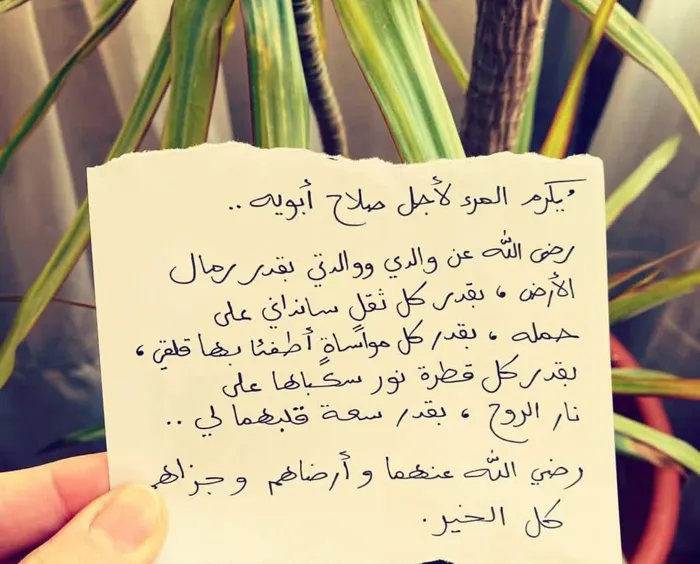 يُكرم المرء لأجل صلاح أبويه ..
رضي الله عن والدي ووالدتي بقدر رمال
الأرض ، بقدر كل ثقلٍ سانداني على
حمله ، بقدر كل مواساةٍ أطفئا بها قلقي ،
بقدر كل قطرة نور سكباها على
نار الروح ، بقدر سعة قلبهما لي ..
رضي الله عنهما و أرضاهم و جزاهم
كل الخير .